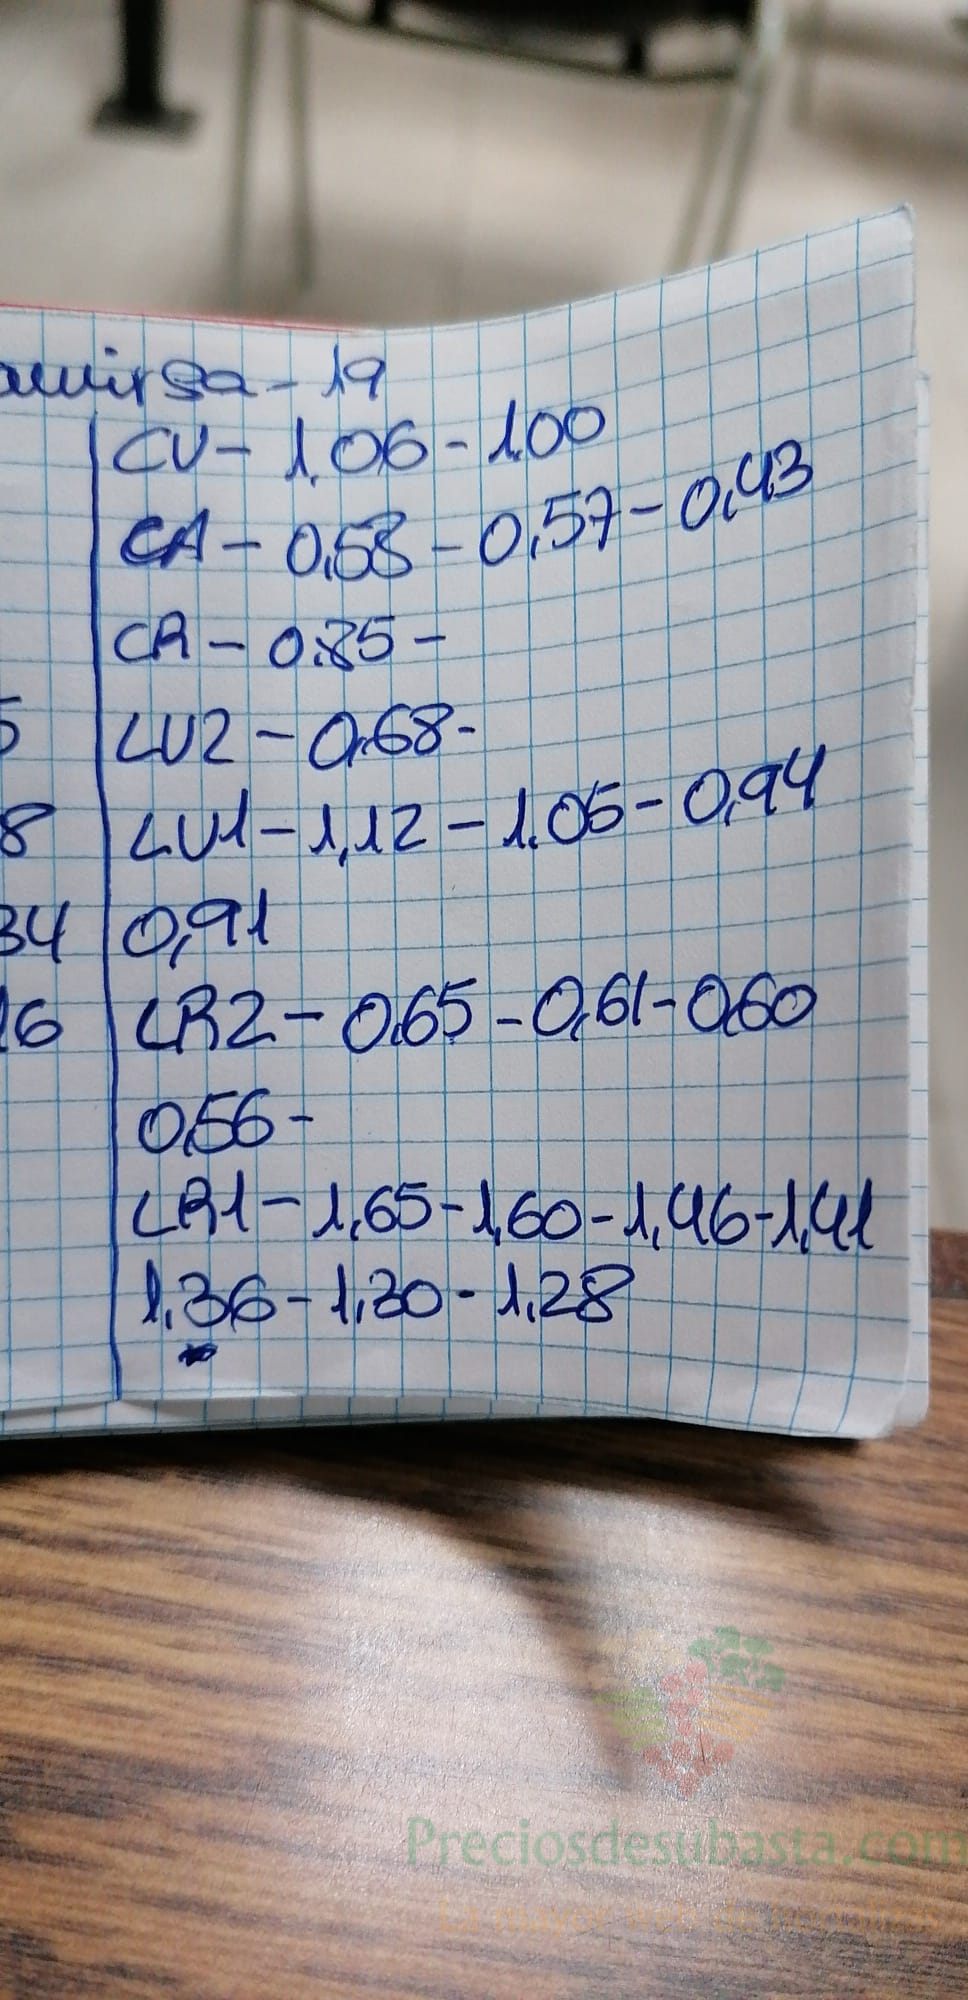 - 19
CV - 1,06 - 1,00
CA - 0,58 - 0,57 - 0,43
CR - 0,85 -
5
LV2 - 0,68 -
8
LV1 - 1,12 - 1,05 - 0,94
34
0,91
16
LR2 - 0,65 - 0,61 - 0,60
0,56 -
LR1 - 1,65 - 1,60 - 1,46 - 1,41
1,36 - 1,30 - 1,28
Preciosdesubasta.com
La mayor web de